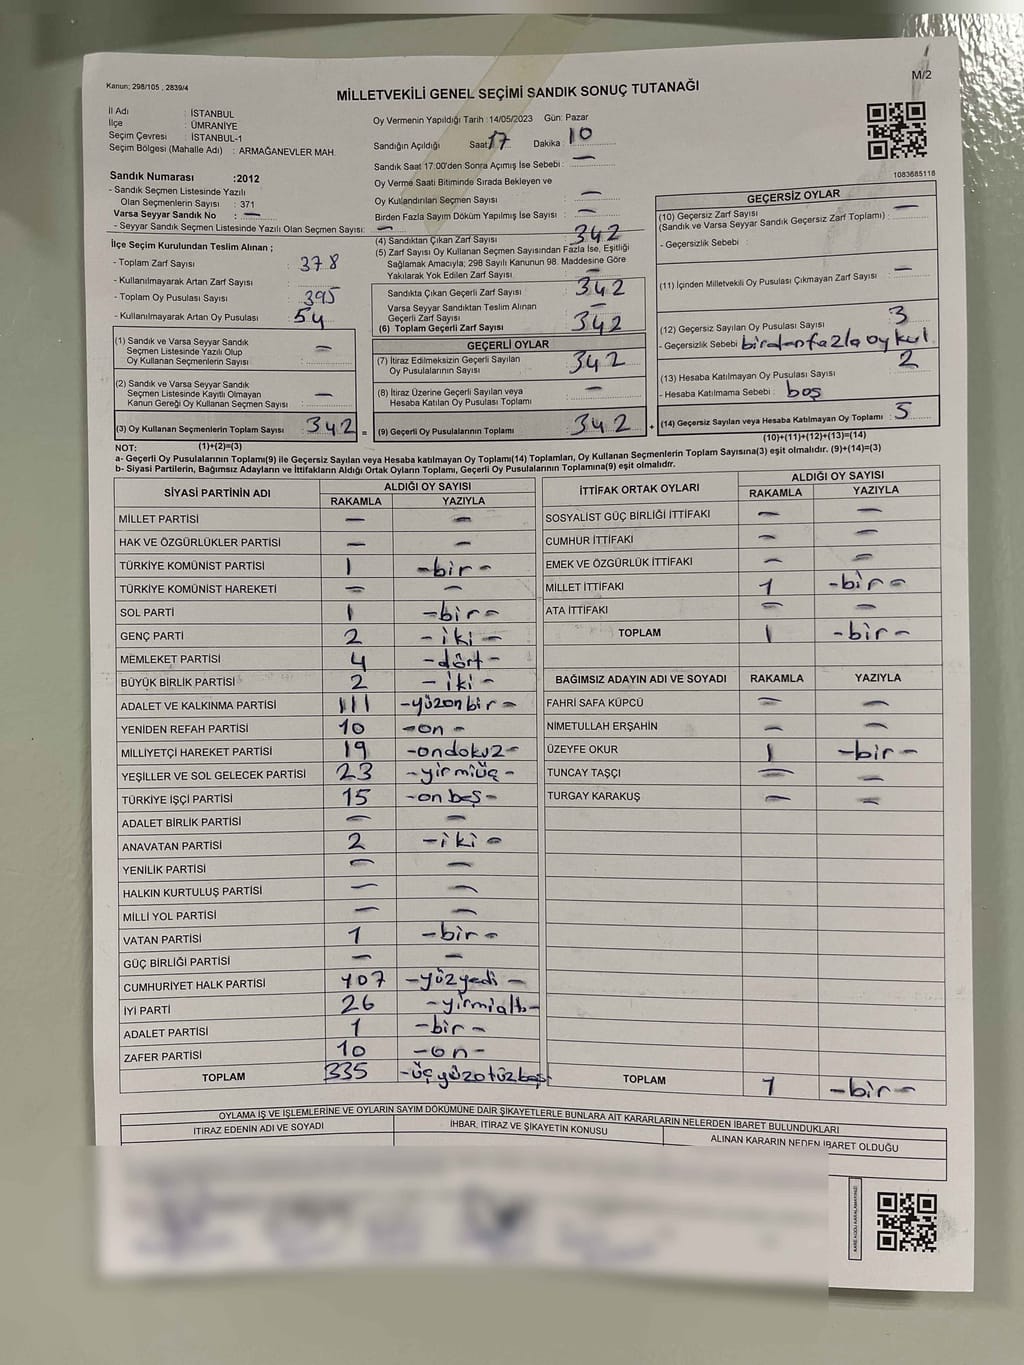 Kanun; 298/105 , 2839/4
M/2
MİLLETVEKİLİ GENEL SEÇİMİ SANDIK SONUÇ TUTANAĞI
İl Adı : İSTANBUL
İlçe : ÜMRANİYE
Seçim Çevresi : İSTANBUL-1
Seçim Bölgesi (Mahalle Adı) : ARMAĞANEVLER MAH.
Sandık Numarası :2012
- Sandık Seçmen Listesinde Yazılı
Olan Seçmenlerin Sayısı : 371
Varsa Seyyar Sandık No : —
- Seyyar Sandık Seçmen Listesinde Yazılı Olan Seçmen Sayısı: —
İlçe Seçim Kurulundan Teslim Alınan ;
- Toplam Zarf Sayısı : 378
- Kullanılmayarak Artan Zarf Sayısı :
- Toplam Oy Pusulası Sayısı : 395
- Kullanılmayarak Artan Oy Pusulası : 54
(1) Sandık ve Varsa Seyyar Sandık
Seçmen Listesinde Yazılı Olup
Oy Kullanan Seçmenlerin Sayısı : —
(2) Sandık ve Varsa Seyyar Sandık
Seçmen Listesinde Kayıtlı Olmayan
Kanun Gereği Oy Kullanan Seçmen Sayısı : —
(3) Oy Kullanan Seçmenlerin Toplam Sayısı : 342
(1)+(2)=(3)
Oy Vermenin Yapıldığı Tarih :14/05/2023 Gün: Pazar
Sandığın Açıldığı Saat: 17 Dakika : 10
Sandık Saat 17:00'den Sonra Açımış İse Sebebi : —
Oy Verme Saati Bitiminde Sırada Bekleyen ve
Oy Kullandırılan Seçmen Sayısı : —
Birden Fazla Sayım Döküm Yapılmış İse Sayısı : —
(4) Sandıktan Çıkan Zarf Sayısı : 342
(5) Zarf Sayısı Oy Kullanan Seçmen Sayısından Fazla İse, Eşitliği
Sağlamak Amacıyla; 298 Sayılı Kanunun 98. Maddesine Göre
Yakılarak Yok Edilen Zarf Sayısı : —
Sandıkta Çıkan Geçerli Zarf Sayısı : 342
Varsa Seyyar Sandıktan Teslim Alınan
Geçerli Zarf Sayısı : —
(6) Toplam Geçerli Zarf Sayısı : 342
GEÇERLİ OYLAR
(7) İtiraz Edilmeksizin Geçerli Sayılan
Oy Pusulalarının Sayısı : 342
(8) İtiraz Üzerine Geçerli Sayılan veya
Hesaba Katılan Oy Pusulası Toplamı : —
= (9) Geçerli Oy Pusulalarının Toplamı : 342
1083685116
GEÇERSİZ OYLAR
(10) Geçersiz Zarf Sayısı
(Sandık ve Varsa Seyyar Sandık Geçersiz Zarf Toplamı) : —
- Geçersizlik Sebebi :
(11) İçinden Milletvekili Oy Pusulası Çıkmayan Zarf Sayısı : —
(12) Geçersiz Sayılan Oy Pusulası Sayısı : 3
- Geçersizlik Sebebi : birden fazla oy kul
(13) Hesaba Katılmayan Oy Pusulası Sayısı : 2
- Hesaba Katılmama Sebebi : boş
+ (14) Geçersiz Sayılan veya Hesaba Katılmayan Oy Toplamı : 5
(10)+(11)+(12)+(13)=(14)
NOT:
a- Geçerli Oy Pusulalarının Toplamı(9) ile Geçersiz Sayılan veya Hesaba katılmayan Oy Toplamı(14) Toplamları, Oy Kullanan Seçmenlerin Toplam Sayısına(3) eşit olmalıdır. (9)+(14)=(3)
b- Siyasi Partilerin, Bağımsız Adayların ve İttifakların Aldığı Ortak Oyların Toplamı, Geçerli Oy Pusulalarının Toplamına(9) eşit olmalıdır.
SİYASİ PARTİNİN ADI ALDIĞI OY SAYISI
RAKAMLA YAZIYLA
MİLLET PARTİSİ — —
HAK VE ÖZGÜRLÜKLER PARTİSİ — —
TÜRKİYE KOMÜNİST PARTİSİ 1 -bir-
TÜRKİYE KOMÜNİST HAREKETİ — —
SOL PARTİ 1 -bir-
GENÇ PARTİ 2 -iki-
MEMLEKET PARTİSİ 4 -dört-
BÜYÜK BİRLİK PARTİSİ 2 -iki-
ADALET VE KALKINMA PARTİSİ 111 -yüzonbir-
YENİDEN REFAH PARTİSİ 10 -on-
MİLLİYETÇİ HAREKET PARTİSİ 19 -ondokuz-
YEŞİLLER VE SOL GELECEK PARTİSİ 23 -yirmiüç-
TÜRKİYE İŞÇİ PARTİSİ 15 -onbeş-
ADALET BİRLİK PARTİSİ — —
ANAVATAN PARTİSİ 2 -iki-
YENİLİK PARTİSİ — —
HALKIN KURTULUŞ PARTİSİ — —
MİLLİ YOL PARTİSİ — —
VATAN PARTİSİ 1 -bir-
GÜÇ BİRLİĞİ PARTİSİ — —
CUMHURİYET HALK PARTİSİ 107 -yüzyedi-
İYİ PARTİ 26 -yirmialtı-
ADALET PARTİSİ 1 -bir-
ZAFER PARTİSİ 10 -on-
TOPLAM 335 -üçyüzotuzbeş
İTTİFAK ORTAK OYLARI ALDIĞI OY SAYISI
RAKAMLA YAZIYLA
SOSYALİST GÜÇ BİRLİĞİ İTTİFAKI — —
CUMHUR İTTİFAKI — —
EMEK VE ÖZGÜRLÜK İTTİFAKI — —
MİLLET İTTİFAKI 1 -bir-
ATA İTTİFAKI — —
TOPLAM 1 -bir-
BAĞIMSIZ ADAYIN ADI VE SOYADI RAKAMLA YAZIYLA
FAHRİ SAFA KÜPCÜ — —
NİMETULLAH ERŞAHİN — —
ÜZEYFE OKUR 1 -bir-
TUNCAY TAŞÇI — —
TURGAY KARAKUŞ — —
TOPLAM 1 -bir-
OYLAMA İŞ VE İŞLEMLERİNE VE OYLARIN SAYIM DÖKÜMÜNE DAİR ŞİKAYETLERLE BUNLARA AİT KARARLARIN NELERDEN İBARET BULUNDUKLARI
İTİRAZ EDENİN ADI VE SOYADI İHBAR, İTİRAZ VE ŞİKAYETİN KONUSU ALINAN KARARIN NEDEN İBARET OLDUĞU
KARE KODU KARALAMAYINIZ!